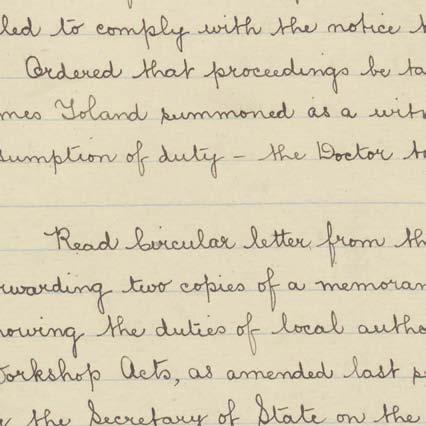 led to comply with the notice t
Ordered that proceedings be ta
mes Toland summoned as a witn
sumption of duty – the Doctor to
Read Circular letter from th
rwarding two copies of a memoran
howing the duties of local autho
Workshop Acts, as amended last se
y the Secretary of State on the